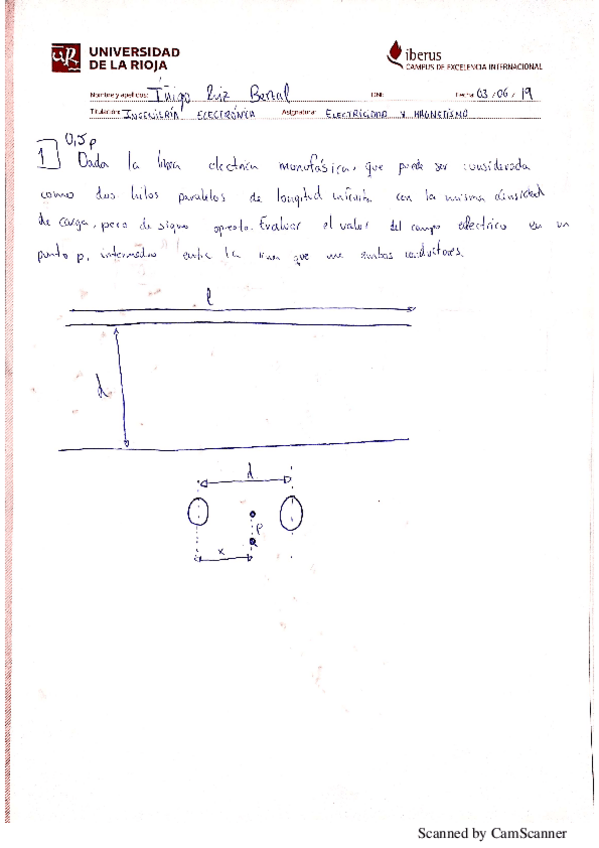 UNIVERSIDAD
DE LA RIOJA
iberus
CAMPUS DE EXCELENCIA INTERNACIONAL
Nombre y apellidos: Iñigo Ruiz Bernal DNI: Fecha: 03/06/19
Titulación: INGENIERÍA ELECTRÓNICA Asignatura: ELECTRICIDAD Y MAGNETISMO
0,5p
1 Dada la línea electrica monofásica, que puede ser considerada
como dos hilos paralelos de longitud infinita con la misma densidad
de carga, pero de signo opuesto. Evaluar el valor del campo electrico en un
punto p, intermedio entre la linea que une ambos conductores.
l
d
d
P
x
Scanned by CamScanner